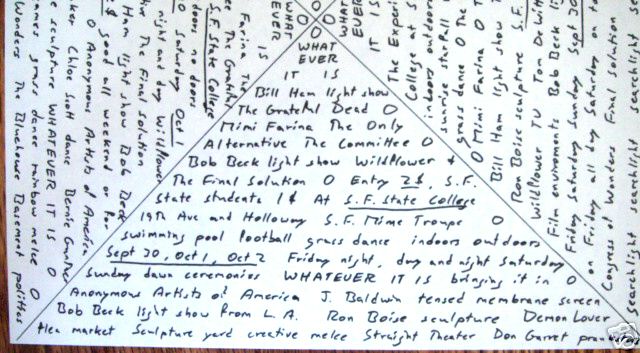 WHAT
EVER
IT IS
Bill Ham light show
The Grateful Dead O
Mimi Farina The Only
Alternative The Committee O
Bob Beck light show Wildflower &
The Final Solution O Entry 2$, S.F.
State students 1$ At S.F. State College
19th Ave and Holloway S.F. Mime Troupe O
swimming pool football grass dance indoors outdoors
Sept 30, Oct 1, Oct 2 Friday night, day and night Saturday
Sunday dawn ceremonies WHATEVER IT IS bringing it in O
Anonymous Artists of America J. Baldwin tensed membrane screen
Bob Beck light show from L.A. Ron Boise sculpture Demon Lover
flea market Sculpture yard creative melee Straight Theater Don Garret
WHAT
EVER
IT IS
Farina The
S.F. State College
doors no doors
O Saturday Oct 1
night and day Wildflower
The Final Solution
Ham light show Bob Beck
$ good all weekend or for
O Anonymous Artists of America
Chloe Scott dance Bernie Gunther
sculpture WHATEVER IT IS O
grass dance rainbow melee O
Wonders The Bluehouse Basement politics
WHAT
EVER
IT IS
The
College at S
indoors outdoors
sunrise starfall
grass dance O The
O Mimi Farina O T
Bill Ham light show
Ron Boise sculpture S.F.
Wildflower TV Tom DeWitt
Film environments Bob Beck
Friday Saturday Sunday Sept 30
on Friday all day Saturday on to
Congress of Wonders Final Solution
Searchlight searchlight searchlight